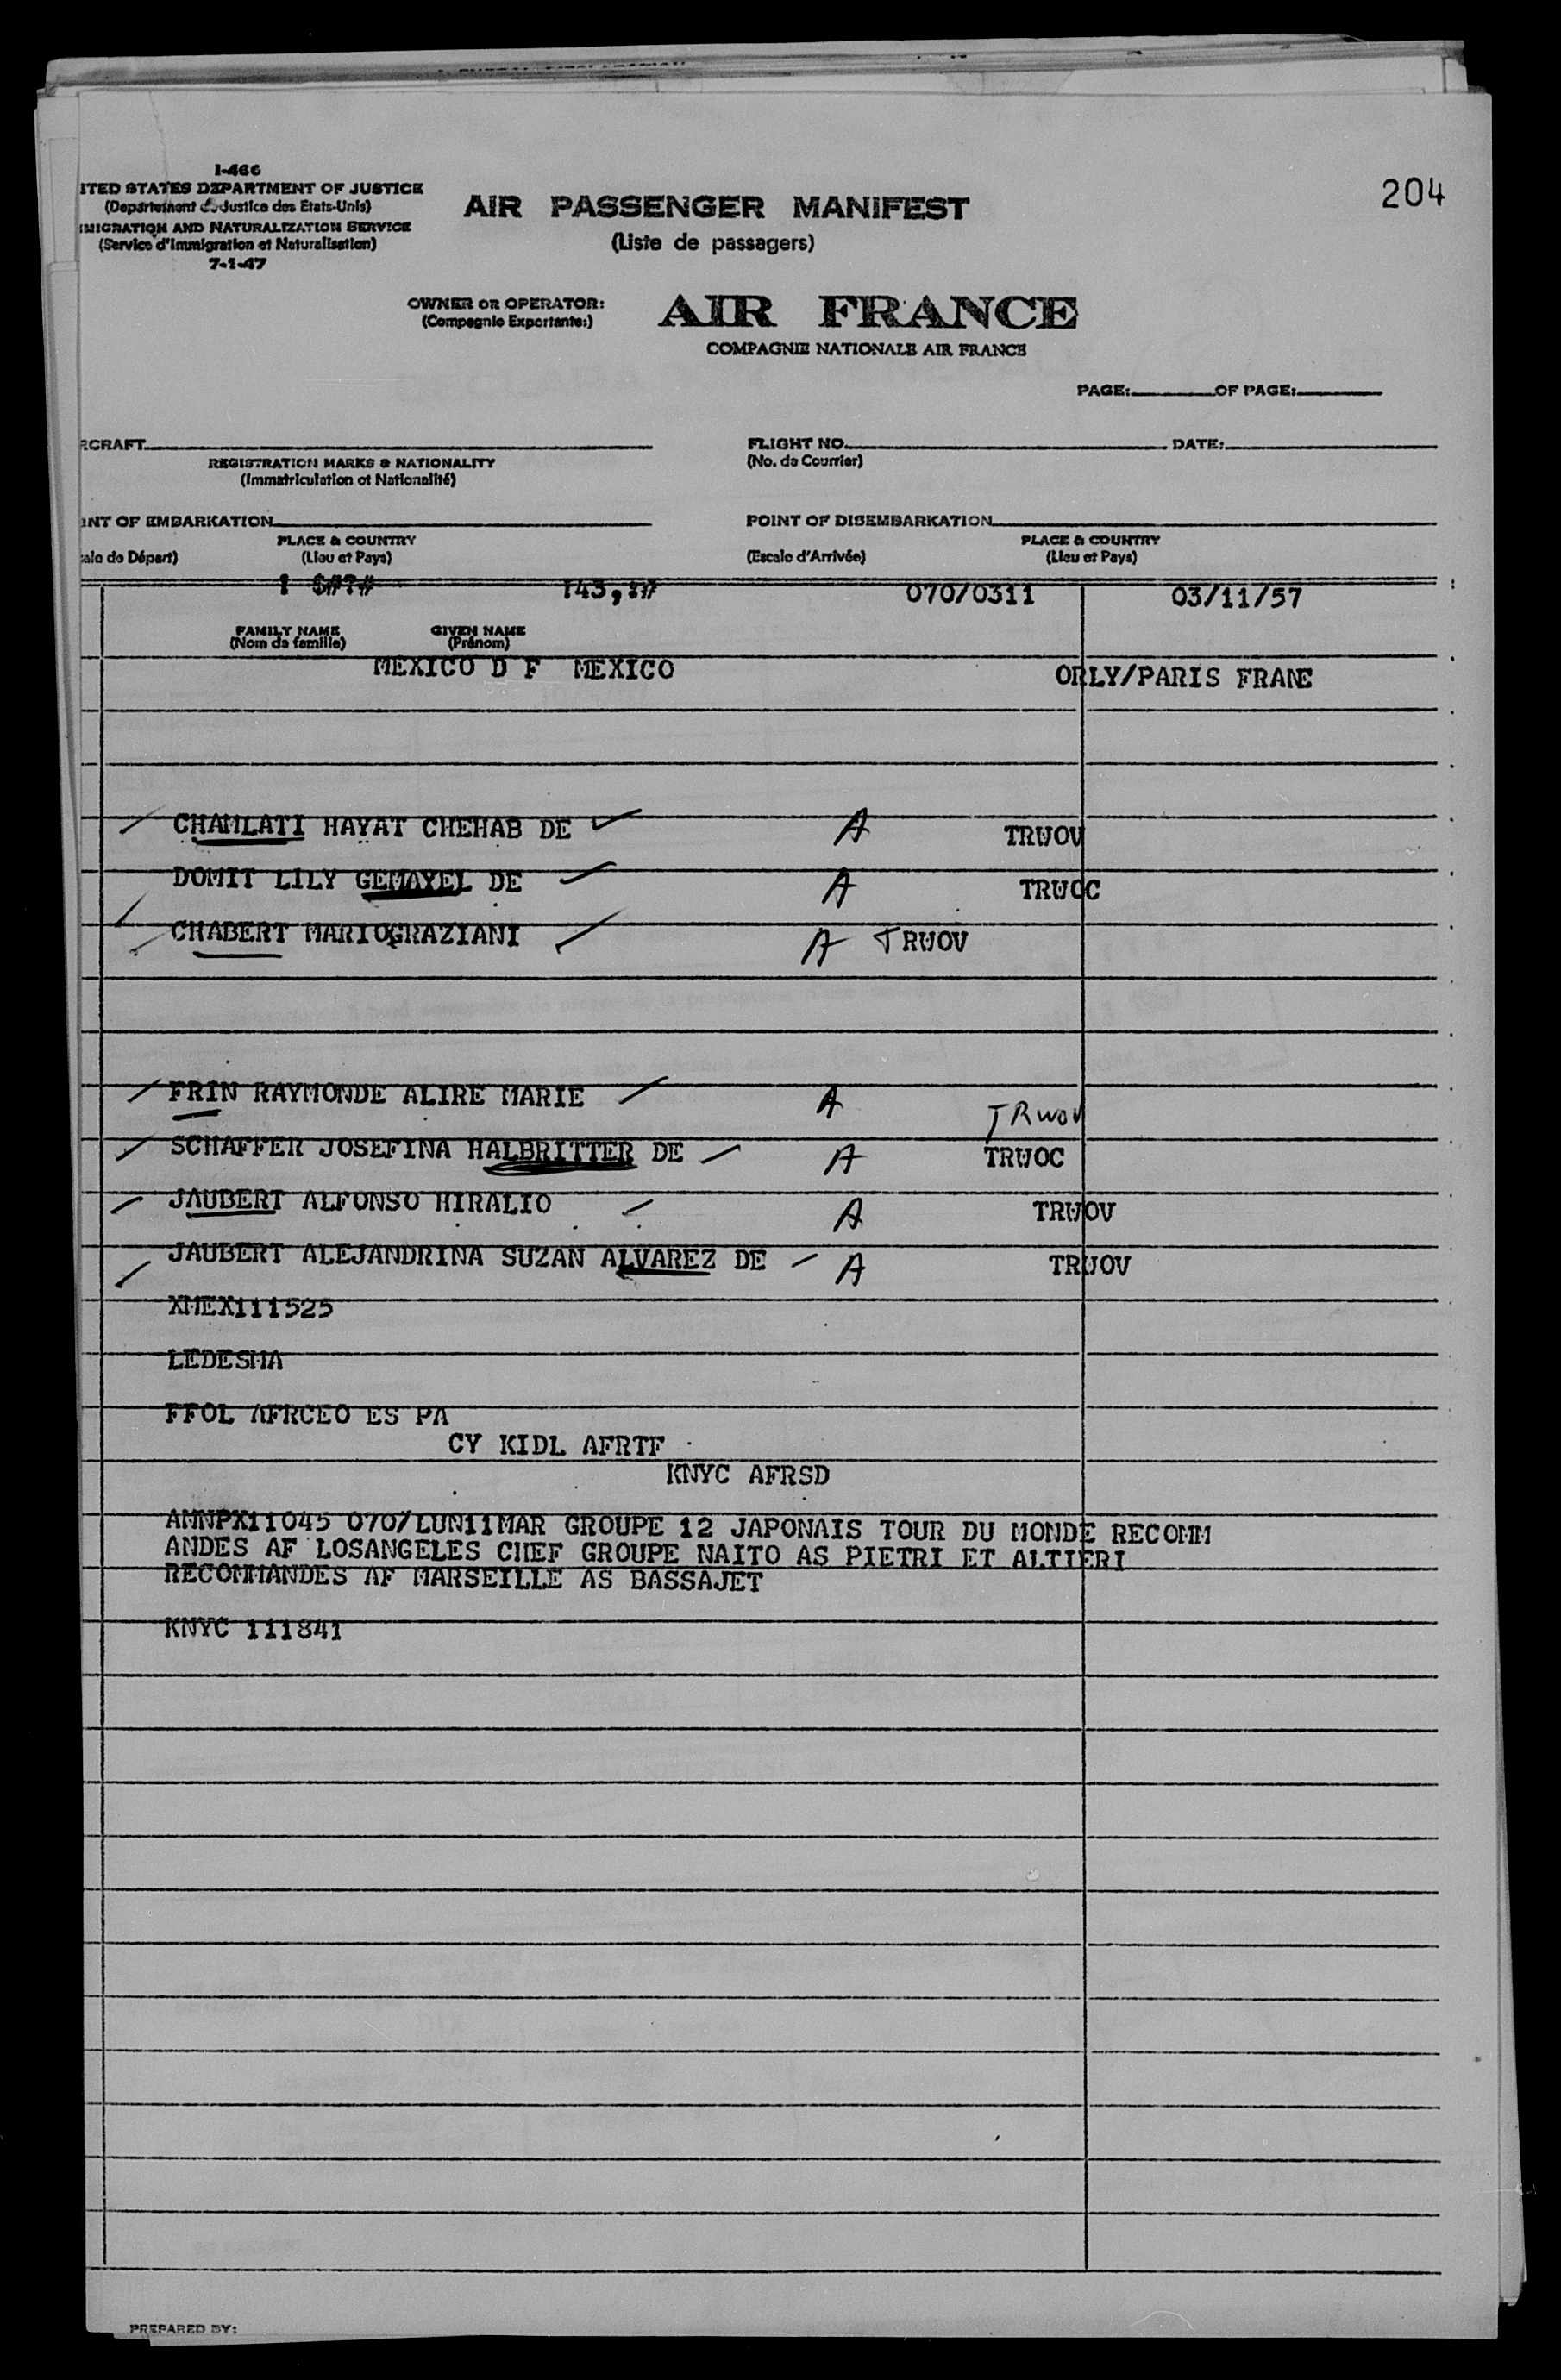 204
I-466
ITED STATES DEPARTMENT OF JUSTICE
(Département de Justice des Etats-Unis)
MIGRATION AND NATURALIZATION SERVICE
(Service d'Immigration et Naturalisation)
7-1-47
AIR PASSENGER MANIFEST
(Liste de passagers)
OWNER OR OPERATOR:
(Compagnie Exportante:)
AIR FRANCE
COMPAGNIE NATIONALE AIR FRANCE
PAGE: OF PAGE:
RCRAFT FLIGHT NO. DATE:
REGISTRATION MARKS & NATIONALITY (No. de Courrier)
(Immatriculation et Nationalité)
INT OF EMBARKATION POINT OF DISEMBARKATION
PLACE & COUNTRY PLACE & COUNTRY
ale de Départ) (Lieu et Pays) (Escale d'Arrivée) (Lieu et Pays)
070/0311 03/11/57
FAMILY NAME GIVEN NAME
(Nom de famille) (Prénom)
MEXICO D F MEXICO ORLY/PARIS FRANE
CHAMLATI HAYAT CHEHAB DE A TRWOV
DOMIT LILY GEMAYEL DE A TRWOC
CHABERT MARIOGRAZIANI A TRWOV
FRIN RAYMONDE ALIRE MARIE A TRWOV
SCHAFFER JOSEFINA HALBRITTER DE A TRWOC
JAUBERT ALFONSO HIRALIO A TRWOV
JAUBERT ALEJANDRINA SUZAN ALVAREZ DE A TRWOV
XMEX111525
LEDESMA
FFOL AFRCEO ES PA
CY KIDL AFRTF
KNYC AFRSD
AMNPX11045 070/LUN11MAR GROUPE 12 JAPONAIS TOUR DU MONDE RECOMM
ANDES AF LOSANGELES CHEF GROUPE NAITO AS PIETRI ET ALTIERI
RECOMMANDES AF MARSEILLE AS BASSAJET
KNYC 111841
PREPARED BY: